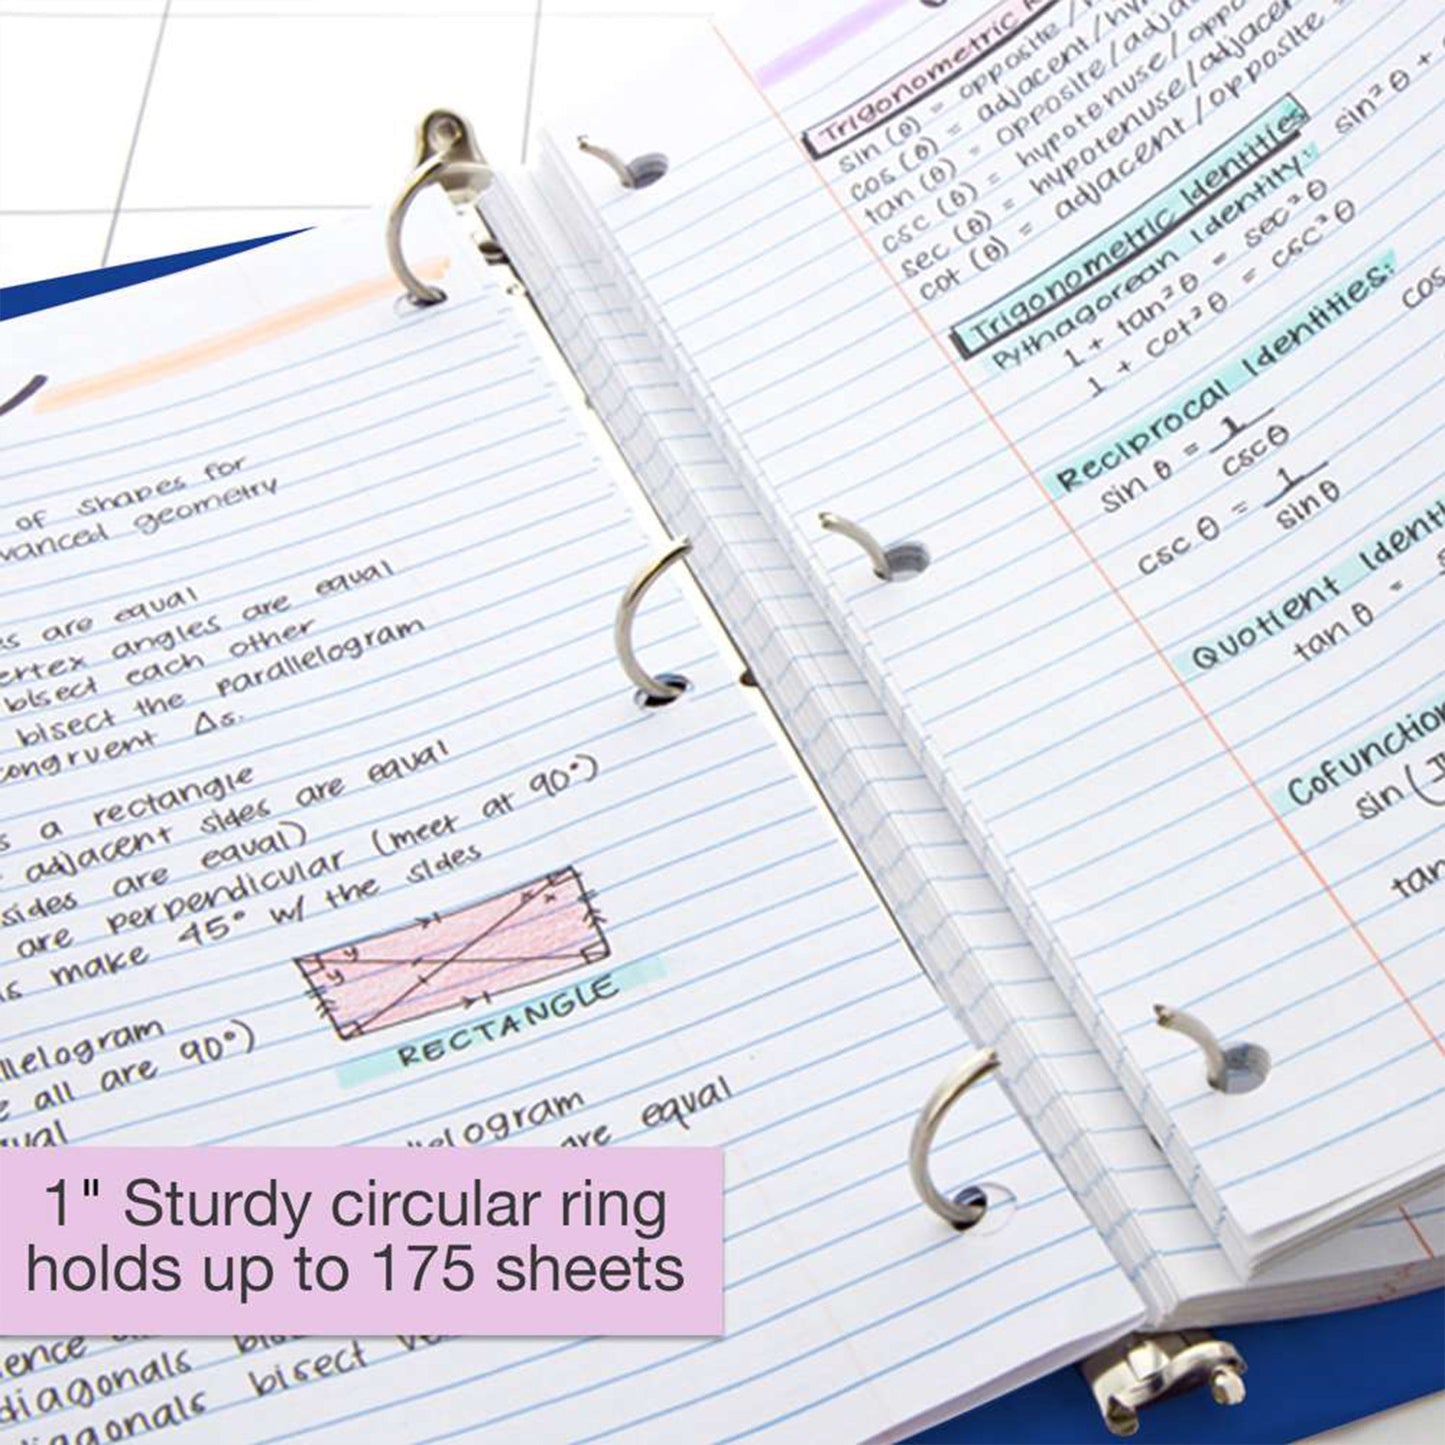 of shapes for
vanced geometry
es are equal
ertex angles are equal
bisect each other
bisect the parallelogram
congruent Δs.
s a rectangle
adjacent sides are equal
sides are equal)
are perpendicular (meet at 90°)
ls make 45° w/ the sides
y
y
x
x
RECTANGLE
llelogram
e all are 90°)
qual
lelogram
are equal
1" Sturdy circular ring
holds up to 175 sheets
ence
diagonals
diagonals bisect
Trigonometric
sin (θ) = opposite /
cos (θ) = adjacent / hy
tan (θ) = opposite / adja
csc (θ) = hypotenuse / oppo
sec (θ) = hypotenuse / adjacen
cot (θ) = adjacent / opposite
Trigonometric Identities
Pythagorean Identity: sin²θ +
1 + tan²θ = sec²θ
1 + cot²θ = csc²θ
Reciprocal Identities:
sin θ = 1
csc θ
cos
csc θ = 1
sin θ
Quotient Identi
tan θ =
Cofunction
sin (
tan